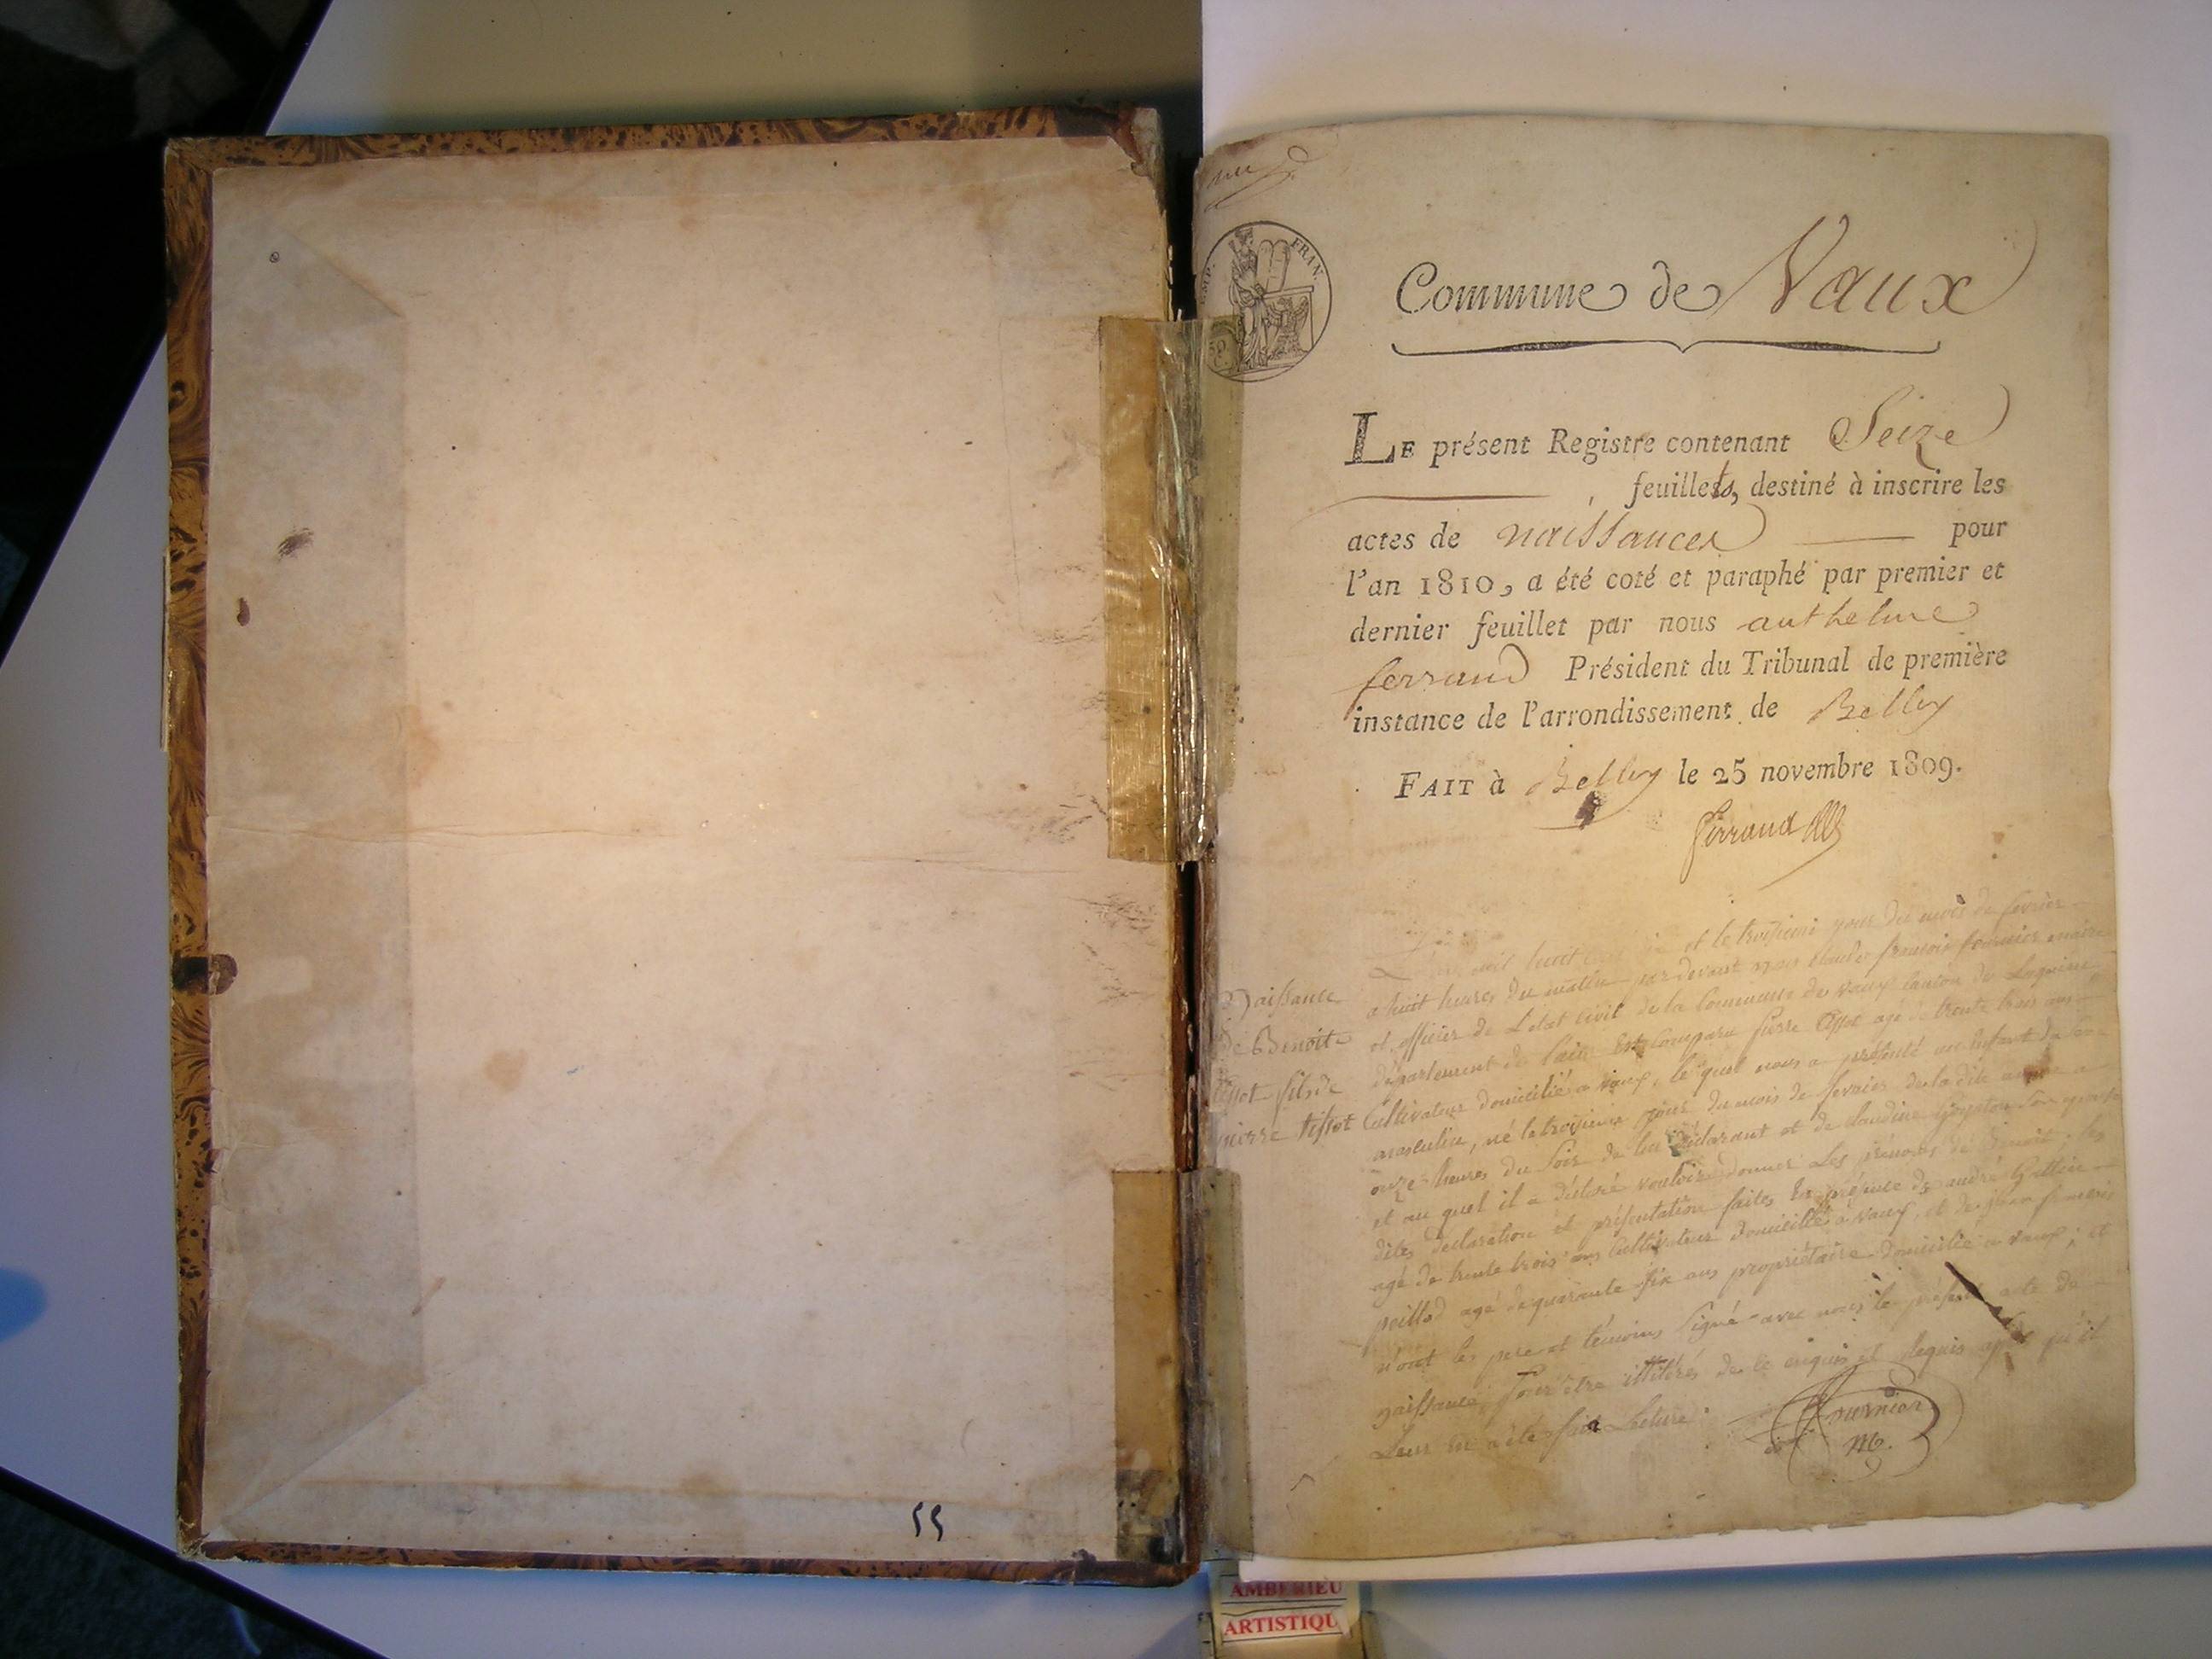 EMP. FRAN.
50
C.
Commune de Vaux
LE présent Registre contenant Seize
feuillets, destiné à inscrire les
actes de naissances pour
l'an 1810, a été coté et paraphé par premier et
dernier feuillet par nous anthelme
ferrand Président du Tribunal de première
instance de l'arrondissement de Belley
FAIT à Belley le 25 novembre 1809.
Ferrand
Naissance
de Benoit
tissot fils de
pierre tissot
L'an mil huit cent dix et le troisieme jour du mois de fevrier
a huit heures du matin par devant nous claude francois fournier maire
et officier de L'etat civil de la Commune de vaux canton de Lagnieu
departement de l'ain Est comparu pierre tissot agé de trente trois ans
Cultivateur domicilié a vaux, le quel nous a présenté un Enfant du sexe
masculin, né le troisieme jour du mois de fevrier de la dite année a
onze heures du soir de lui déclarant et de claudine
et au quel il a déclaré vouloir donner Les prénoms de Benoit. les
dites declaration et présentation faites En présence de andré
agé de trente trois ans Cultivateur domicillié a vaux, et de jean francois
agé de quarante six ans propriétaire domicilié a vaux; et
n'ont les pere et témoins Signé avec nous le présent acte de
naissance, pour être illitérés de ce enquis et requis après qu'il
Leur en a été fait Lecture.
Fournier
m.
55
AMBERIEU
ARTISTIQU